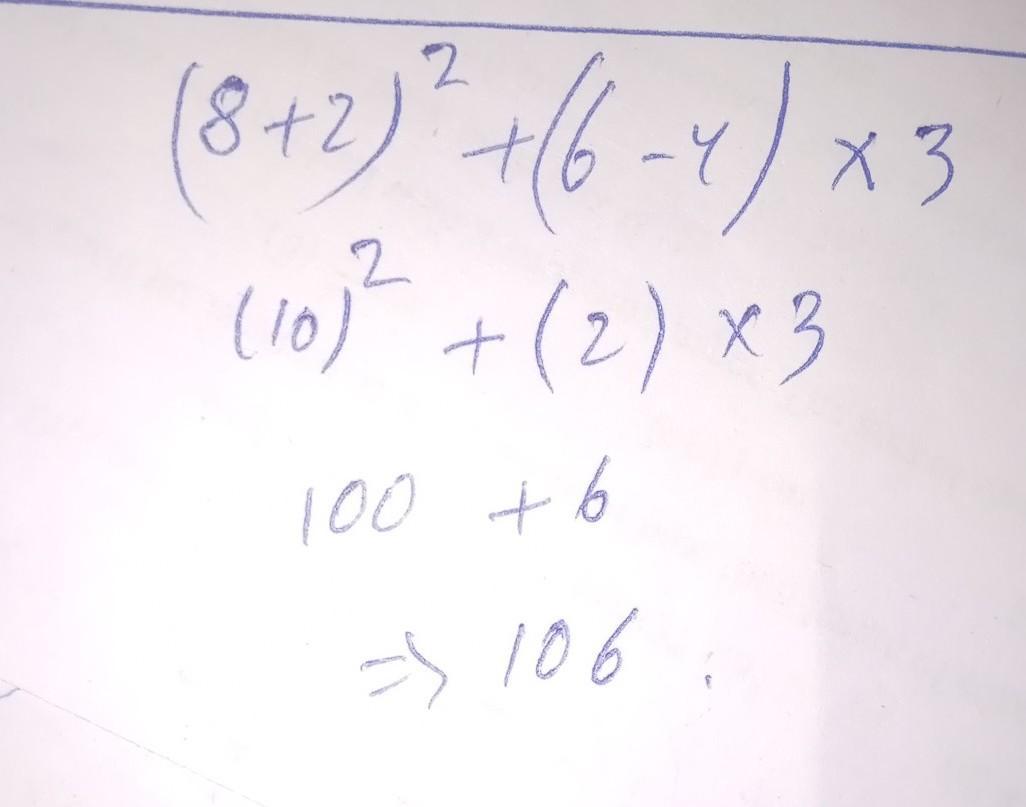 (8+2)² +(6-4) × 3
(10)² + (2) × 3
100 + 6
=> 106.